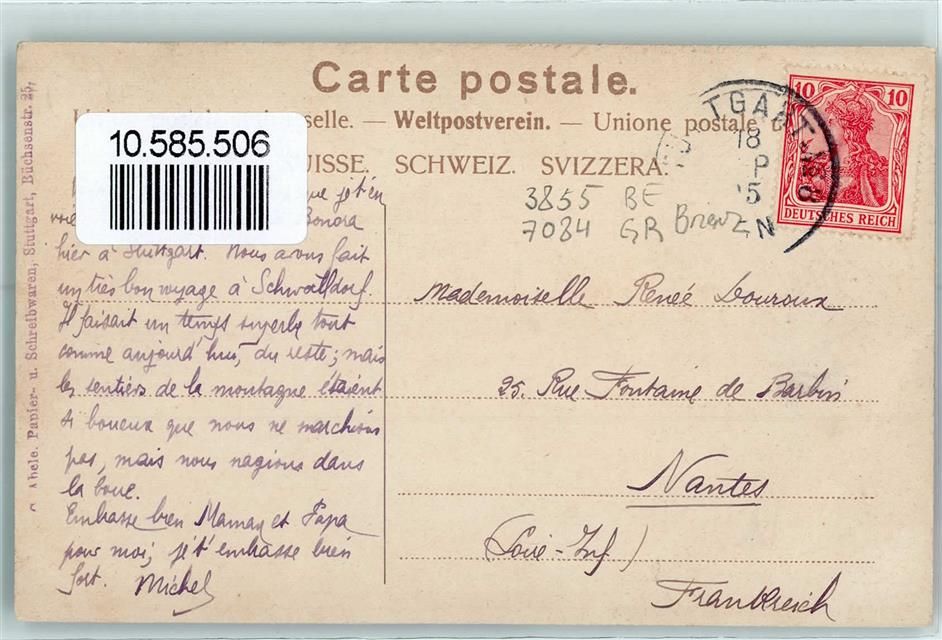 Carte postale.
selle. — Weltpostverein. — Unione postale
UISSE. SCHWEIZ. SVIZZERA.
10.585.506
TGART
18
P
5
N
10 10
DEUTSCHES REICH
3855 BE
7084 GR Brienz
Abele. Papier- u. Schreibwaren, Stuttgart, Büchsenstr. 25,
que je t'en
hier à Stuttgart. Nous avons fait
un très bon voyage à
Il faisait un temps superbe tout
comme aujourd'hui, du reste; mais
les sentiers de la montagne étaient
si boueux que nous ne marchions
pas, mais nous nagions dans
la boue.
Embrasse bien Maman et Papa
pour moi; je t'embrasse bien
fort. Michel
Mademoiselle Renée Douroux
25. Rue Fontaine de Barbin
Nantes
(Loire-Inf)
Frankreich